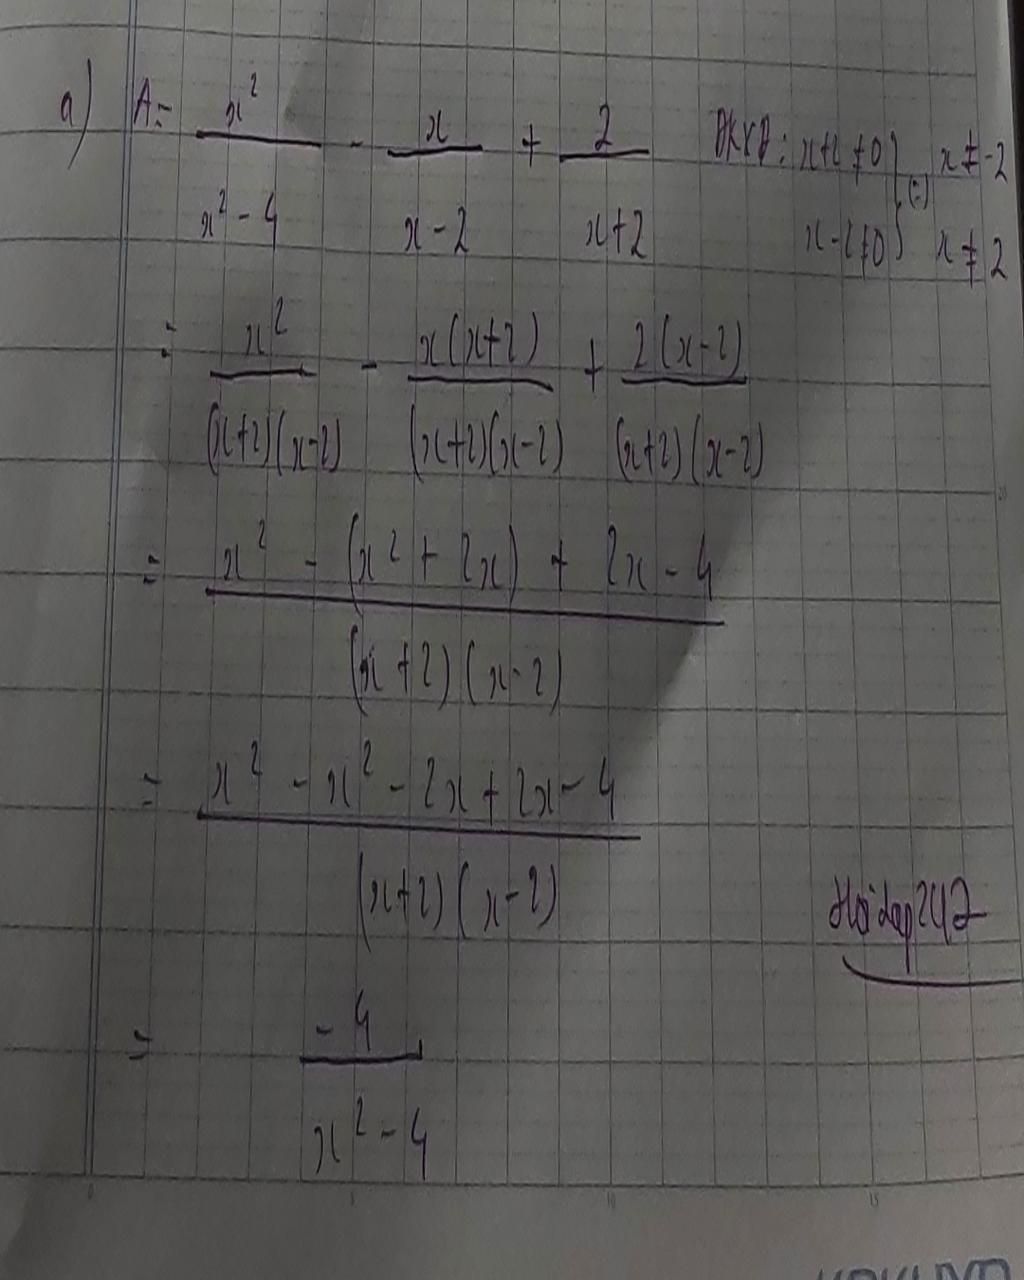 a) A = x²/(x² - 4) - x/(x - 2) + 2/(x+2) ĐKXĐ: x+2 ≠ 0 } (=) x ≠ -2
x-2 ≠ 0 } x ≠ 2
= x²/((x+2)(x-2)) - x(x+2)/((x+2)(x-2)) + 2(x-2)/((x+2)(x-2))
= (x² - (x² + 2x) + 2x - 4)/((x+2)(x-2))
= (x² - x² - 2x + 2x - 4)/((x+2)(x-2))
Hoidap247
= -4/(x² - 4)
0 5 10 15